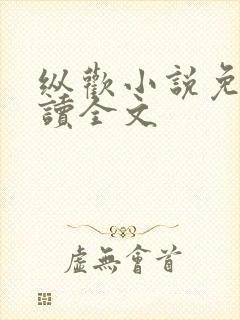 縱歡小說免
讀全文
虛無會首